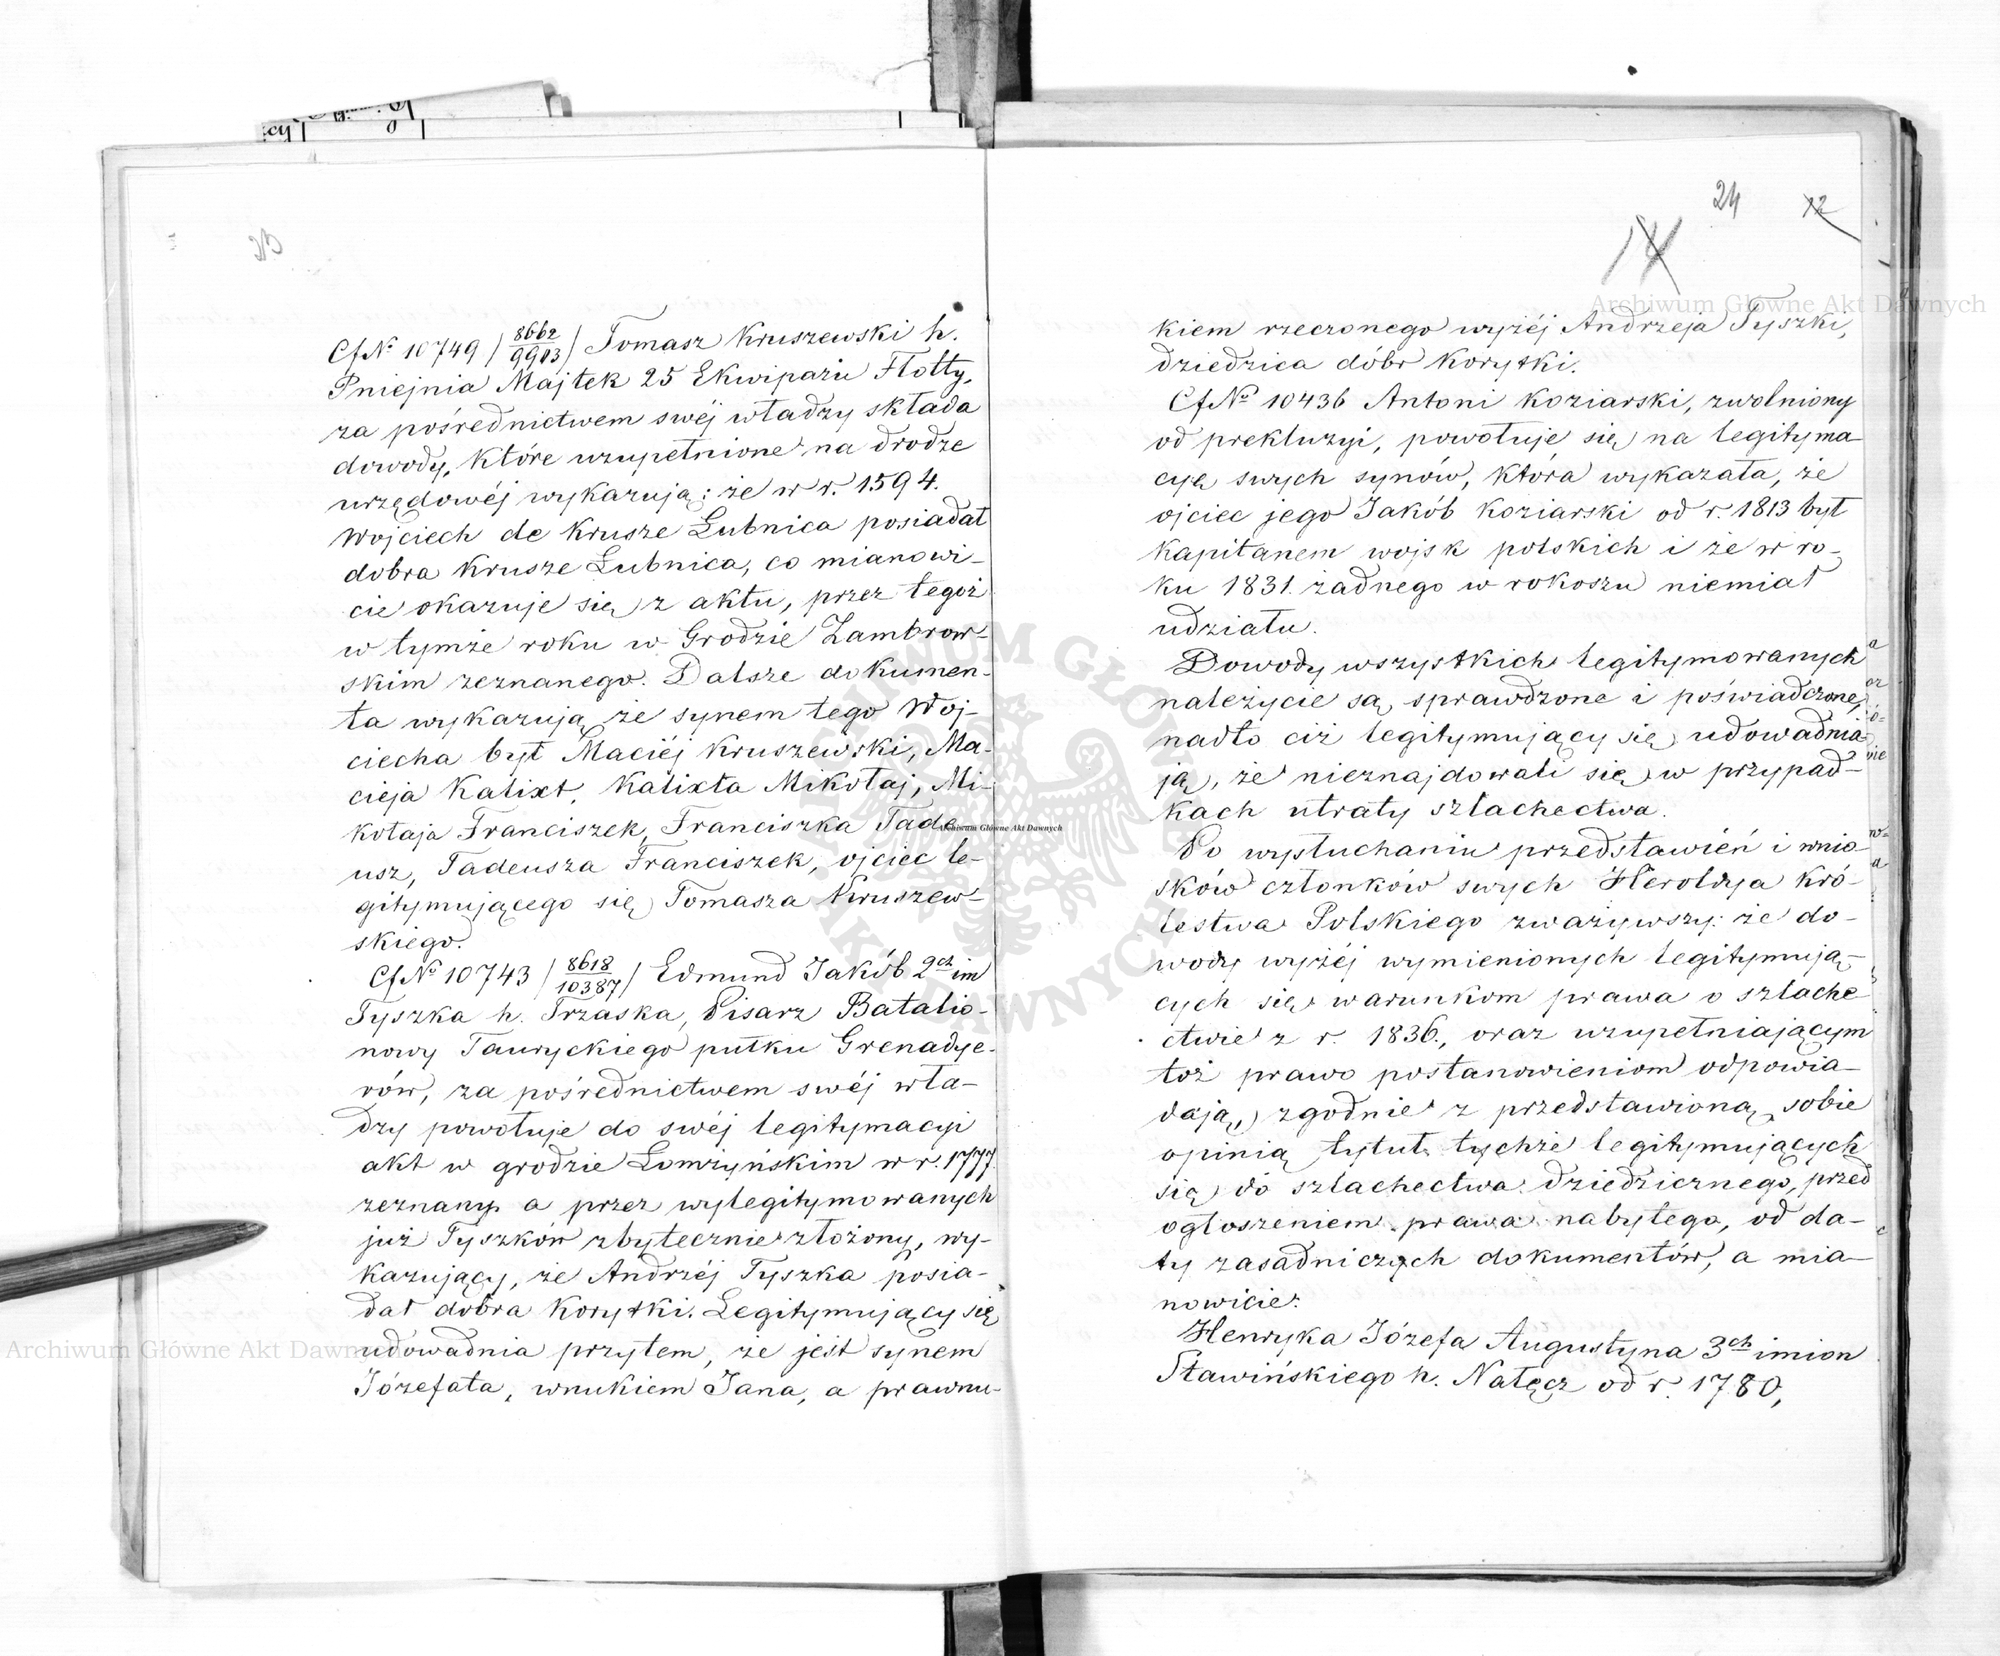 Cf№ 10749 / 8662/9903 / Tomasz Kruszewski h.
Pniejnia Majtek 25 Ekwipażu Flotty,
za pośrednictwem swéj władzy składa
dowody, które uzupełnione na drodze
urzędowéj wykazują: że w r. 1594.
Wojciech de Krusze Łubnica posiadał
dobra Krusze Łubnica, co mianowi-
cie okazuje się z aktu, przez tegoż
w tymże roku w Grodzie Zambrow-
skim zeznanego. Dalsze dokumen-
ta wykazują że synem tego Woj-
ciecha był Maciéj Kruszewski, Ma-
cieja Kalixt, Kalixta Mikołaj, Mi-
kołaja Franciszek, Franciszka Tade
usz, Tadeusza Franciszek, ojciec le-
gitymującego się Tomasza Kruszew-
skiego.
Cf№ 10743 / 8618/10387 / Edmund Jakób 2ch im
Tyszka h. Trzaska, Pisarz Batalio-
nowy Tauryckiego pułku Grenadye-
rów, za pośrednictwem swéj wła-
dzy powołuje do swéj legitymacyi
akt w grodzie Łomżyńskim w r. 1777.
zeznany a przez wylegitymowanych
już Tyszków zbytecznie złożony, wy-
kazujący, że Andrzéj Tyszka posia-
dał dobra Korytki. Legitymujący się
udowadnia przytem, że jest synem
Józefata, wnukiem Jana, a prawnu-
24
12
14
kiem rzeczonego wyżéj Andrzeja Tyszki,
dziedzica dóbr Korytki.
Cf№ 10436 Antoni Koziarski, zwolniony
od prekluzyi, powołuje się na legityma-
cyę swych synów, która wykazała, że
ojciec jego Jakób Koziarski od r. 1813 był
Kapitanem wojsk polskich i że w ro-
ku 1831. żadnego w rokoszu niemiał
udziału.
Dowody wszystkich legitymowanych
należycie są sprawdzone i poświadczone,
nadto ciż legitymujący się udowadnia
ją, że nieznajdowali się w przypad-
kach utraty szlachectwa.
Po wysłuchaniu przedstawień i wnio
sków członków swych Heroldya Kró-
lestwa Polskiego zważywszy: że do-
wody wyżéj wymienionych legitymują-
cych się warunkom prawa o szlache
ctwie z r. 1836., oraz uzupełniającym
toż prawo postanowieniom odpowia-
dają, zgodnie z przedstawioną sobie
opinią tytuł tychże legitymujących
się do szlachectwa dziedzicznego, przed
ogłoszeniem prawa nabytego, od da-
ty zasadniczych dokumentów, a mia-
nowicie:
Henryka Józefa Augustyna 3ch imion
Sławińskiego h. Nałęcz od r. 1780,
Archiwum Główne Akt Dawnych
Archiwum Główne Akt Dawnych
Archiwum Główne Akt Dawnych
ARCHIWUM GŁÓWNE AKT DAWNYCH